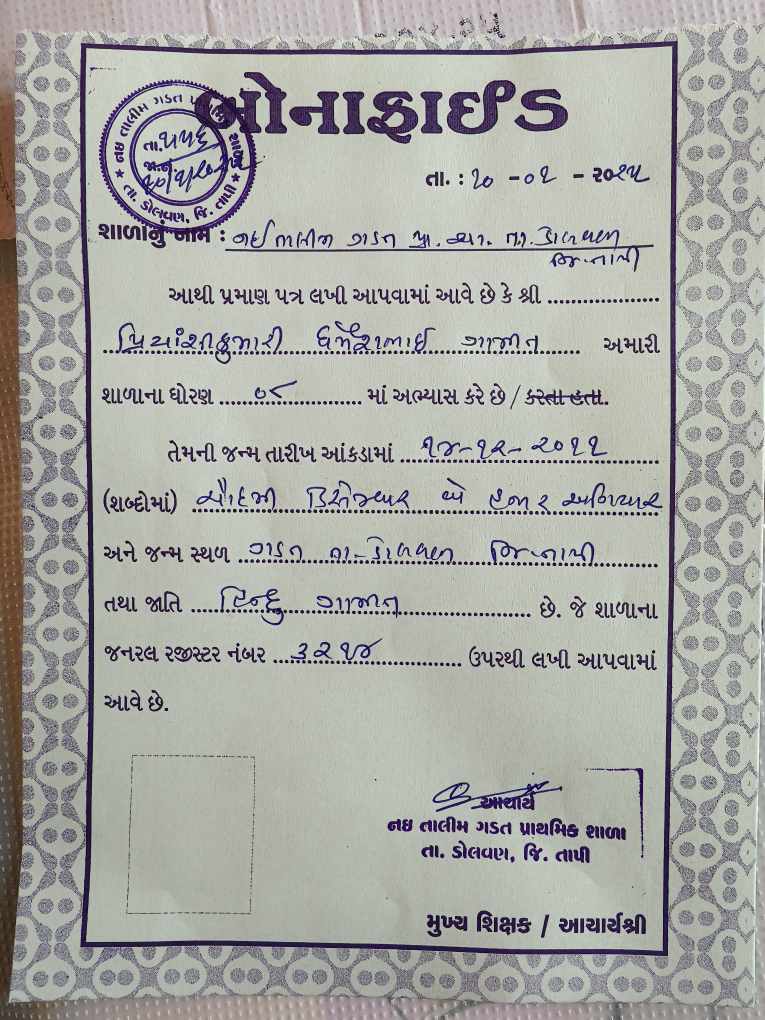 બોનાફાઈડ
નઇ તાલીમ ગડત
તા. ડોલવણ, જિ. તાપી
તા. : ૨૦ - ૦૧ - ૨૦૨૫
શાળાનું નામ : નઈ તાલીમ ગડત પ્રા. શા. તા. ડોલવણ
જિ. તાપી
આથી પ્રમાણ પત્ર લખી આપવામાં આવે છે કે શ્રી
પ્રિયાંશીકુમારી ધર્મેશભાઈ ગામીત અમારી
શાળાના ધોરણ ૦૮ માં અભ્યાસ કરે છે / કરતા હતા.
તેમની જન્મ તારીખ આંકડામાં ૧૪-૧૨-૨૦૧૧
(શબ્દોમાં) ચૌદમી ડિસેમ્બર બે હજાર અગિયાર
અને જન્મ સ્થળ ગડત તા-ડોલવણ જિ-તાપી
તથા જાતિ હિન્દુ ગામીત છે. જે શાળાના
જનરલ રજીસ્ટર નંબર ૩૨૧૪ ઉપરથી લખી આપવામાં
આવે છે.
આચાર્ય
નઇ તાલીમ ગડત પ્રાથમિક શાળા
તા. ડોલવણ, જિ. તાપી
મુખ્ય શિક્ષક / આચાર્યશ્રી